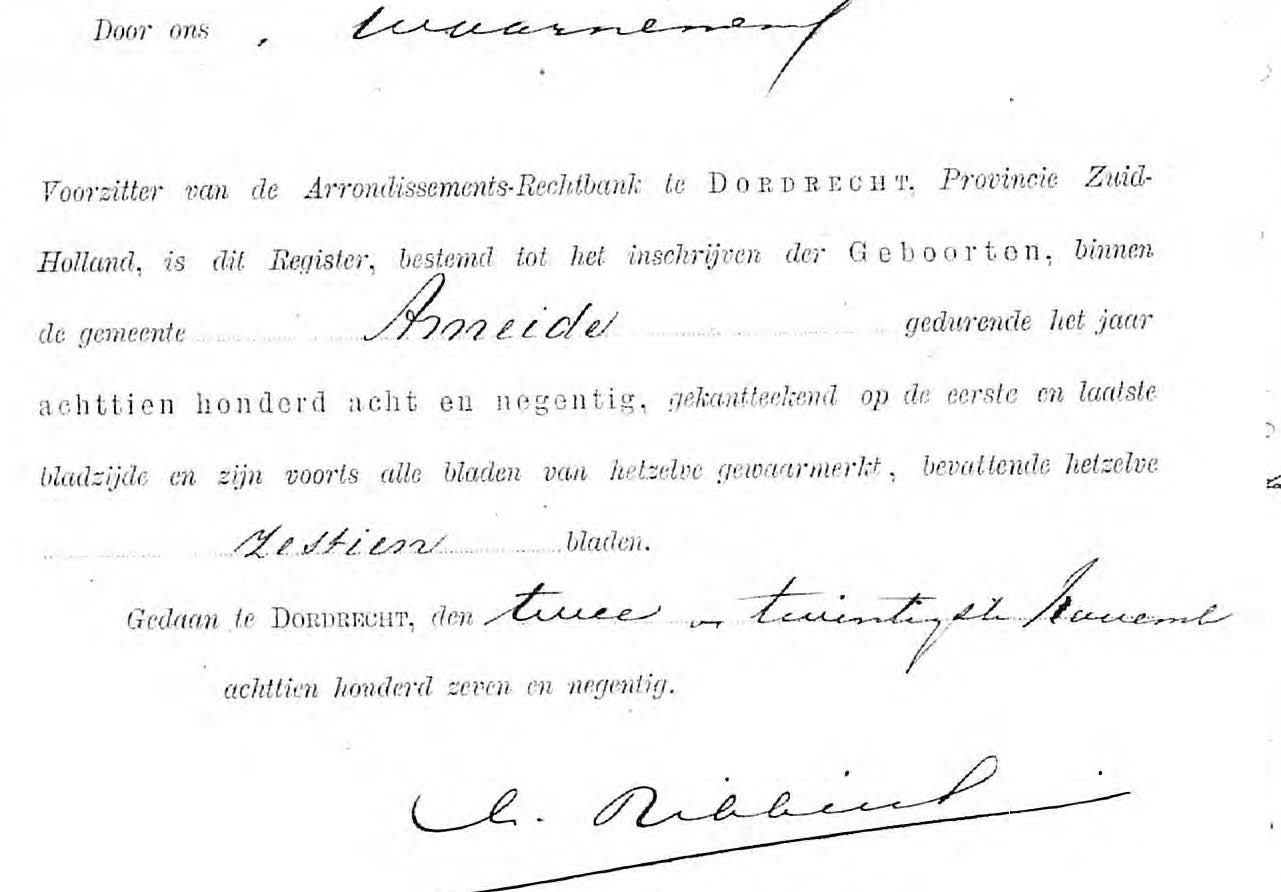 Door ons , waarnemend
Voorzitter van de Arrondissements-Rechtbank te DORDRECHT, Provincie Zuid-
Holland, is dit Register, bestemd tot het inschrijven der Geboorten, binnen
de gemeente Ameide gedurende het jaar
achttien honderd acht en negentig, gekantteekend op de eerste en laatste
bladzijde en zijn voorts alle bladen van hetzelve gewaarmerkt, bevattende hetzelve
zestien bladen.
Gedaan te DORDRECHT, den twee en twintigste Novemb
achttien honderd zeven en negentig.